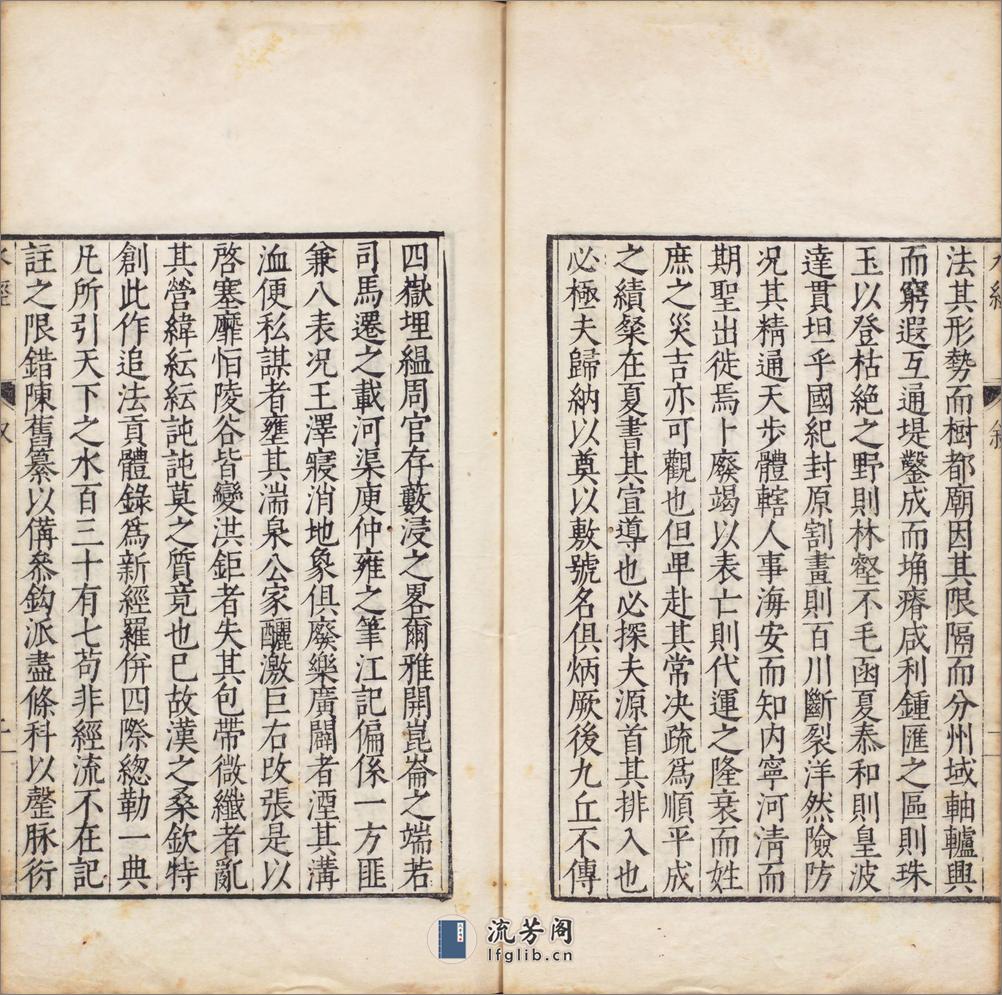 法其形勢而樹都廟因其限隔而分州域軸轤興
而窮遐互通堤鑿成而埆瘠咸利鍾匯之區則珠
玉以登枯絶之野則林壑不毛函夏泰和則皇波
達貫坦乎國紀封原割畫則百川斷裂洋然險防
况其精通天步體轄人事海安而知内寧河清而
期聖出徙焉卜廢竭以表亡則代運之隆衰而姓
庶之災吉亦可觀也但畀赴其常决疏爲順平成
之績粲在夏書其宣導也必探夫源首其排入也
必極夫歸納以奠以敷號名俱炳厥後九丘不傳
四嶽埋緼周官存藪浸之畧爾雅開崑崙之端若
司馬遷之載河渠庾仲雍之筆江記偏係一方匪
兼八表况王澤寢消地象俱廢樂廣闢者湮其溝
洫便私謀者壅其湍泉公家釃激巨右改張是以
啓塞靡怕陵谷皆變洪鉅者失其包帶微纖者亂
其營緯紜紜訰訰莫之質竟也已故漢之桑欽特
創此作追法貢體錄爲新經羅併四際緫勒一典
凡所引天下之水百三十有七苟非經流不在記
註之限錯陳舊纂以備叅鈎派盡條科以罄脉衍
流芳阁
lfglib.cn